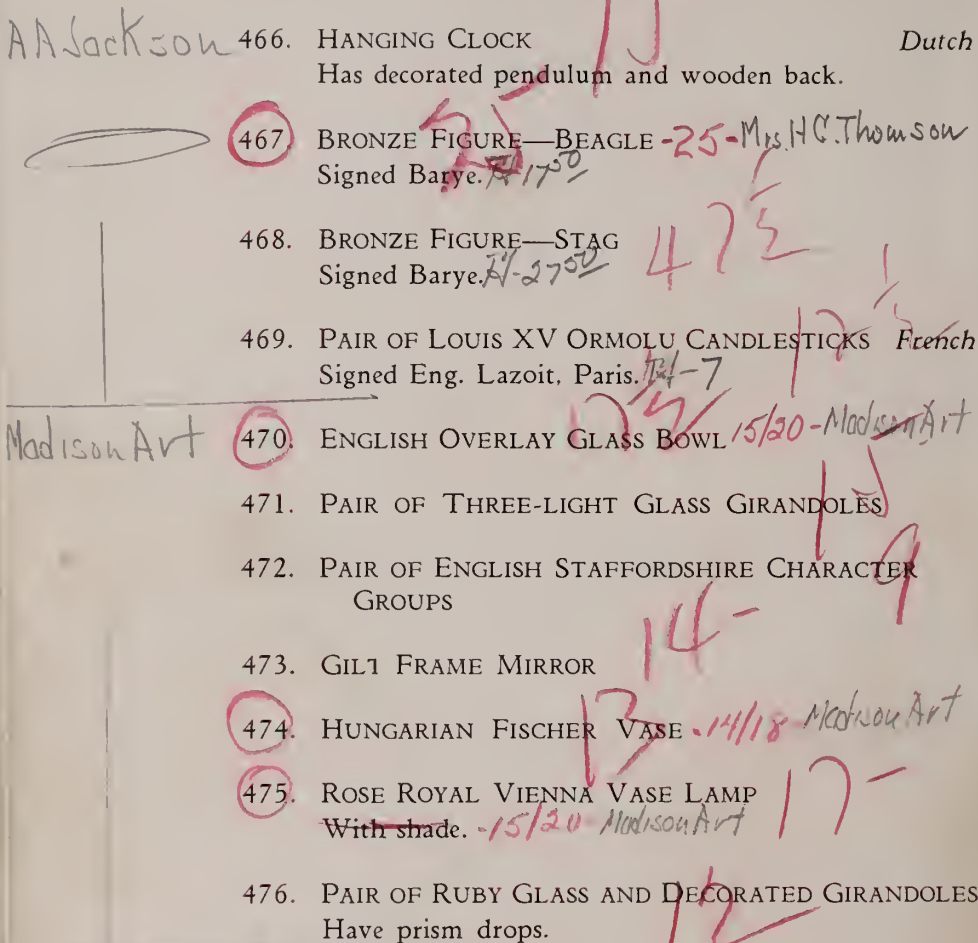 AA Jackson 466. HANGING CLOCK Dutch 15
Has decorated pendulum and wooden back.
467. BRONZE FIGURE—BEAGLE -25- Mrs. H C. Thomson
Signed Barye. 17 50 25-
468. BRONZE FIGURE—STAG 47 5
Signed Barye. -27 50
469. PAIR OF LOUIS XV ORMOLU CANDLESTICKS French 12
Signed Eng. Lazoit, Paris. -7
Madison Art 470. ENGLISH OVERLAY GLASS BOWL 15/20 - Madison Art
471. PAIR OF THREE-LIGHT GLASS GIRANDOLES 15
472. PAIR OF ENGLISH STAFFORDSHIRE CHARACTER 9
GROUPS
473. GILT FRAME MIRROR 14-
474. HUNGARIAN FISCHER VASE -14/18 - Madison Art 13
475. ROSE ROYAL VIENNA VASE LAMP 17-
With shade. -15/20- Madison Art
476. PAIR OF RUBY GLASS AND DECORATED GIRANDOLES
Have prism drops. 12